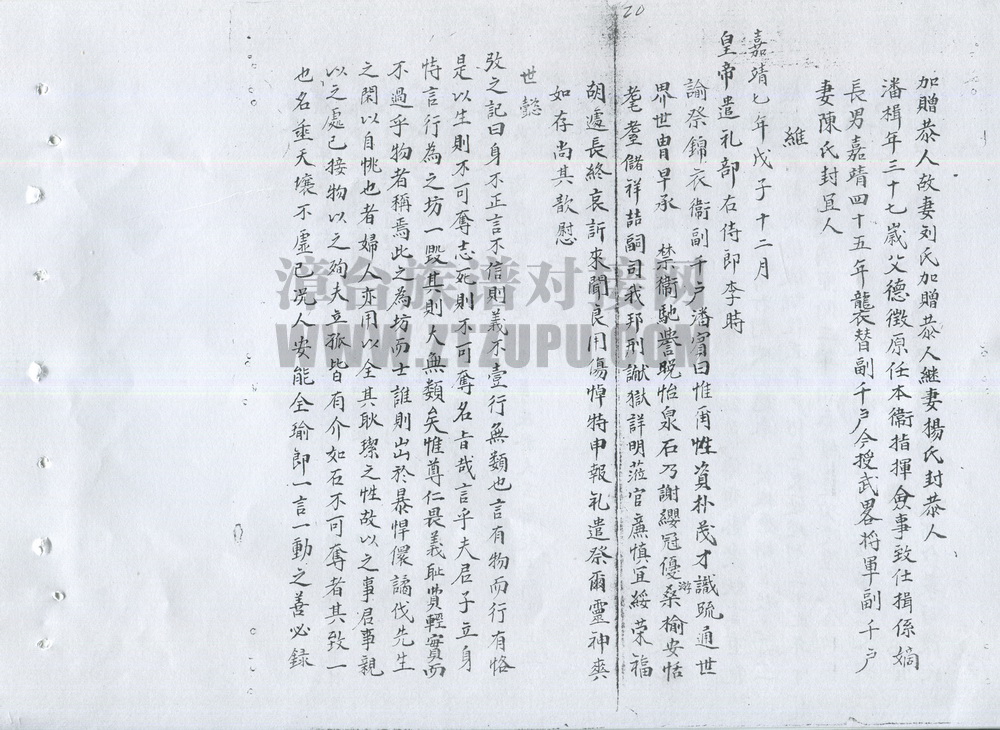 20
加贈恭人故妻刘氏加贈恭人継妻楊氏封恭人
潘楫年三十七歲父德徵原任本衛指揮僉事致仕揖係嫡
長男嘉靖四十五年襲替副千户今授武畧将軍副千户
妻陳氏封宜人
維
嘉靖七年戊子十二月
皇帝遣礼部右侍郎李時
諭祭錦衣衞副千户潘賓曰惟甬性資朴茂才識疏通世
界世冑早承 禁衞馳譽晚怡泉石乃謝纓冠優游桑榆安恬
耄耋儲祥喆嗣司我邦刑讞獄詳明蒞官亷慎宜綏荣福
胡遽長終哀訴来聞良用傷悼特申報礼遣祭爾靈神爽
如存尚其歆慰
世懿
攷之記曰身不正言不信則義不壹行無類也言有物而行有恪
是以生則不可奪志死則不可奪名旨哉言乎夫君子立身
恃言行為之坊一毀其則人無類矣惟尊仁畏義耻費輕實而
不過乎物者稱焉此之為坊而士誰則出於暴悍儇譎伐先生
之閑以自恌也者婦人亦用以全其耿潔之性故以之事君事親
以之處己接物以之殉夫立孤皆有介如石不可奪者其致一
也名垂天壤不虛已况人安能全瑜即一言一動之善必録
漳台族谱对接网
WWW.ZTZUPU.COM